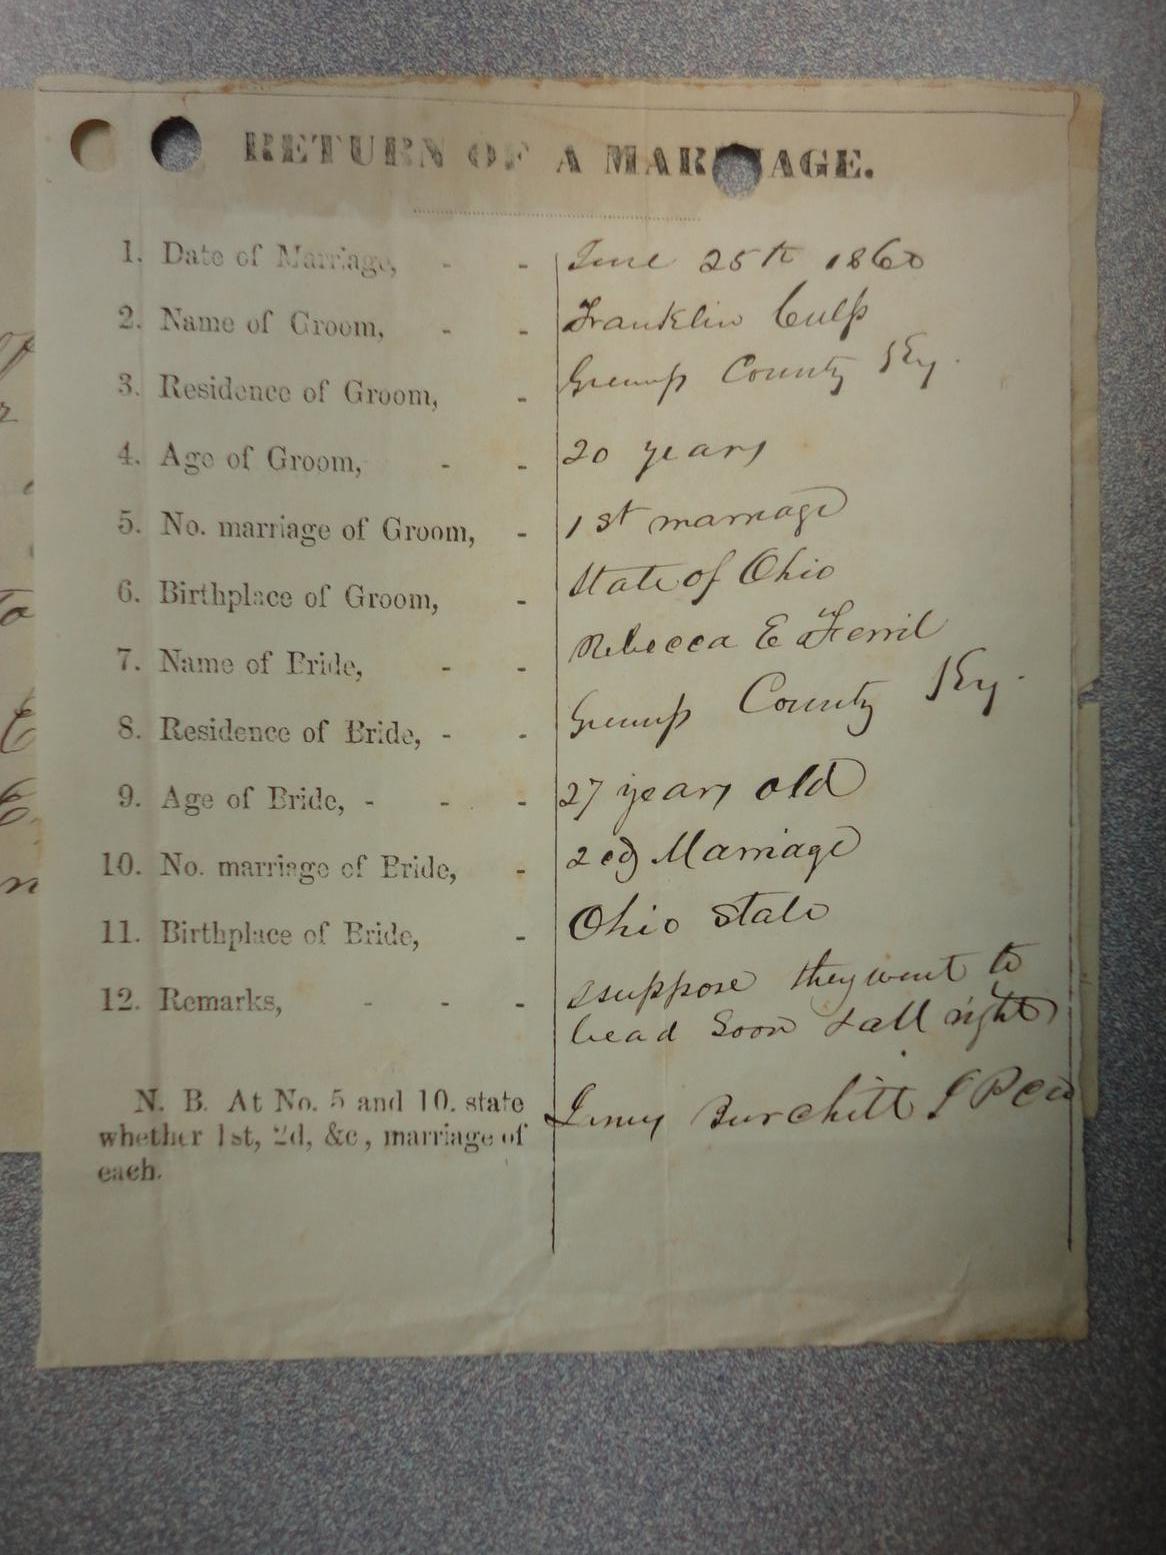 RETURN OF A MAR AGE.
1. Date of Marriage, - - June 25th 1860
2. Name of Groom, - - Franklin Culp
3. Residence of Groom, - Greenup County Ky.
4. Age of Groom, - - 20 years
5. No. marriage of Groom, - 1st marriage
6. Birthplace of Groom, - State of Ohio
7. Name of Bride, - - Rebecca E Ferril
8. Residence of Bride, - - Greenup County Ky.
9. Age of Bride, - - - 27 years old
10. No. marriage of Bride, - 2ed Marriage
11. Birthplace of Bride, - Ohio State
12. Remarks, - - - I suppose they went to
bead Soon & all right
N. B. At No. 5 and 10. state
whether 1st, 2d, &c, marriage of
each.
Burchitt J P